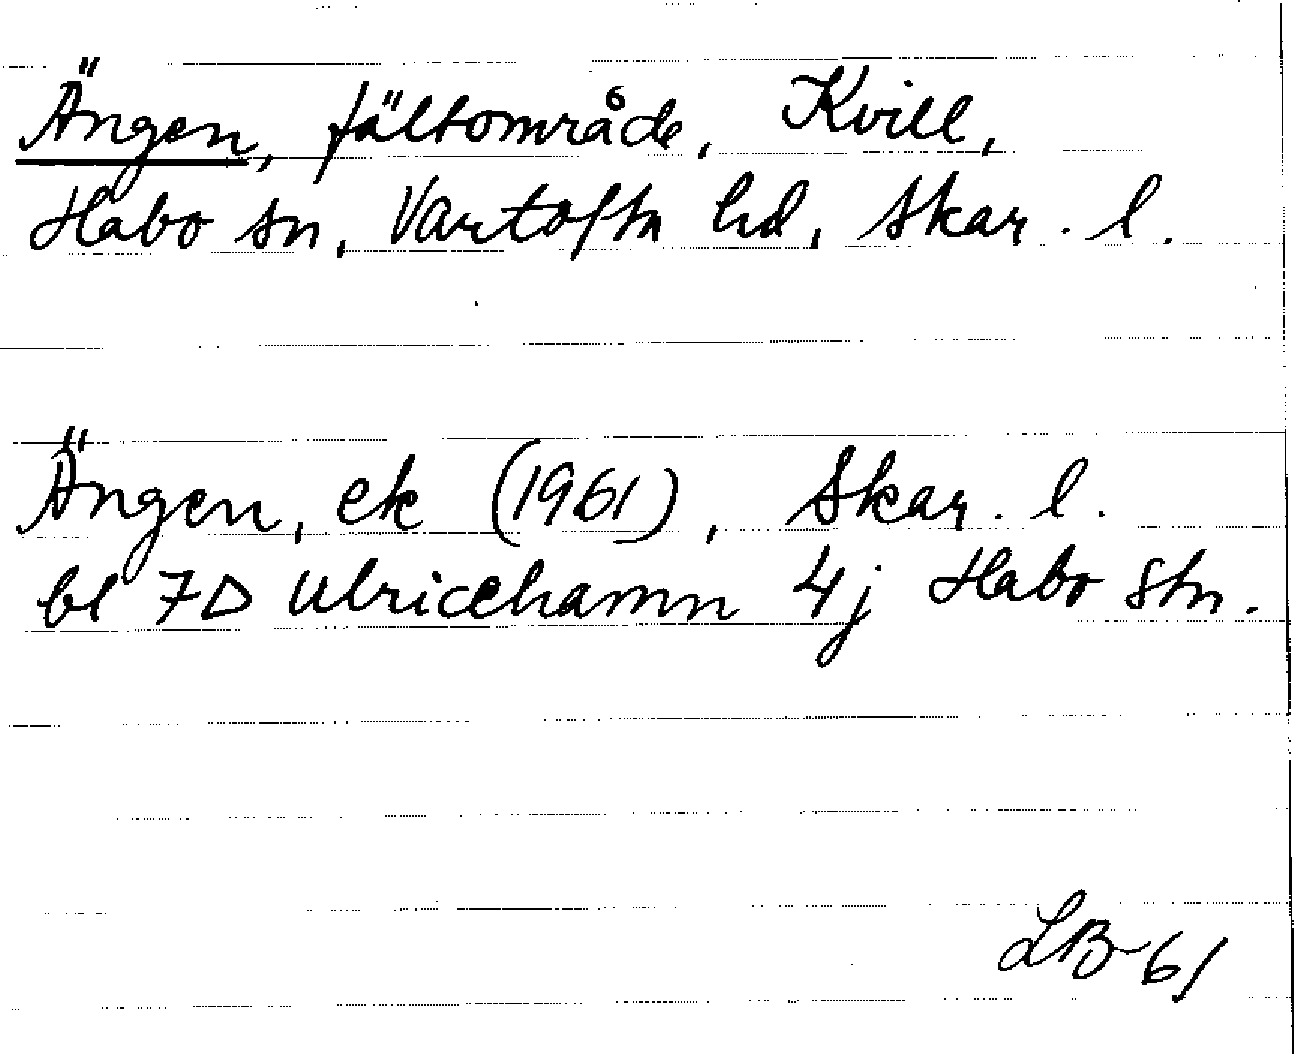 Ängen, fältområde, Kvill,
Habo sn, Vartofta hd, Skar. l.
Ängen, ek (1961), Skar. l.
bl 7D Ulricehamn 4j Habo stn.
LB 61